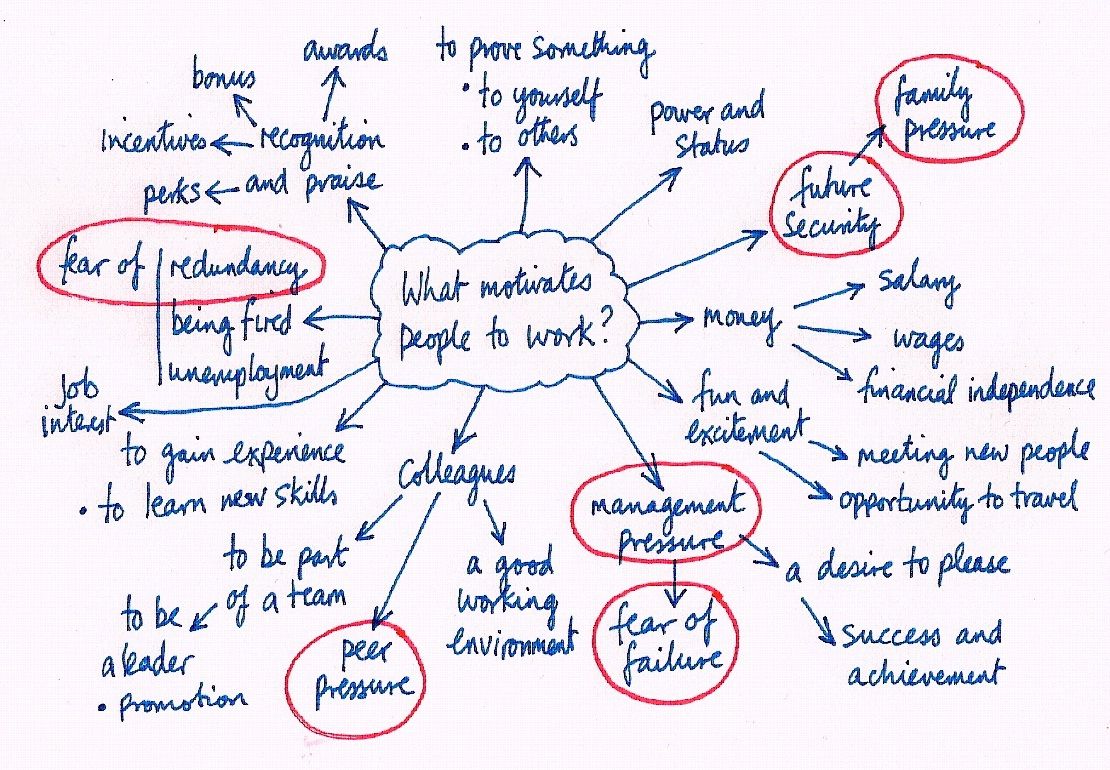 What motivates
people to work?
awards
bonus
incentives
recognition
perks
and praise
to prove something
• to yourself
• to others
power and
status
family
pressure
future
security
money
salary
wages
financial independence
fun and
excitement
meeting new people
opportunity to travel
management
pressure
a desire to please
success and
achievement
fear of
failure
Colleagues
a good
working
environment
peer
pressure
to be part
of a team
to be
a leader
• promotion
to gain experience
• to learn new skills
job
interest
fear of
redundancy
being fired
unemployment